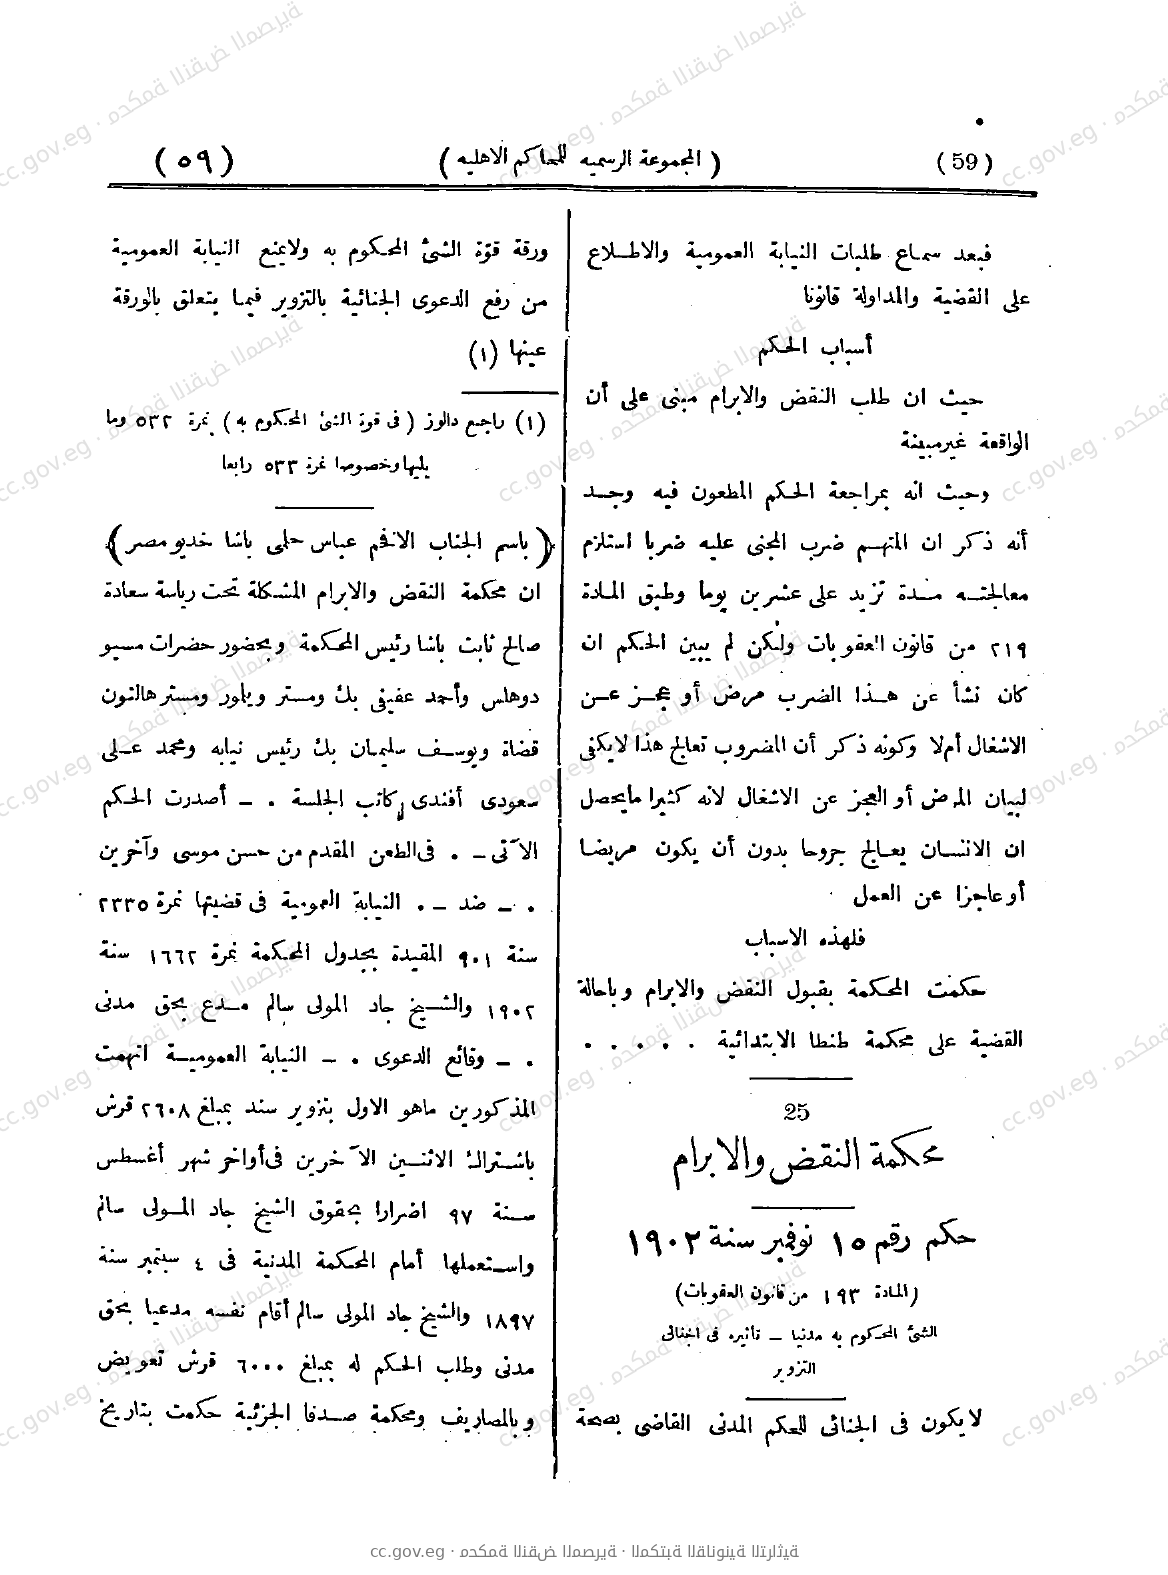 (59) ( المجموعة الرسميه للمحاكم الاهليه ) (٥٩)
فبعد سماع طلبات النيابة العمومية والاطلاع
على القضية والمداولة قانونا
أسباب الحكم
حيث ان طلب النقض والابرام مبنى على أن
الواقعة غير مبينة
وحيث انه بمراجعة الحكم المطعون فيه وجد
أنه ذكر ان المتهم ضرب المجنى عليه ضربا استلزم
معالجته مدة تزيد على عشرين يوما وطبق المادة
٢١٩ من قانون العقوبات ولكن لم يبين الحكم ان
كان نشأ عن هذا الضرب مرض أو عجز عن
الاشغال أم لا وكونه ذكر أن المضروب تعالج هذا لا يكفى
لبيان المرض أو العجز عن الاشغال لانه كثيرا ما يحصل
ان الانسان يعالج جروحا بدون أن يكون مريضا
أو عاجزا عن العمل
فلهذه الاسباب
حكمت المحكمة بقبول النقض والابرام وباحالة
القضية على محكمة طنطا الابتدائية . . . . .
25
محكمة النقض والابرام
حكم رقم ١٥ نوفمبر سنة ١٩٠٢
(المادة ١٩٣ من قانون العقوبات)
الشئ المحكوم به مدنيا – تأثيره فى الجنائى
التزوير
لا يكون فى الجنائى للحكم المدنى القاضى بصحة
ورقة قوّة الشئ المحكوم به ولا يمنع النيابة العمومية
من رفع الدعوى الجنائية بالتزوير فيما يتعلق بالورقة
عينها (١)
(١) راجع دالوز ( فى قوة الشئ المحكوم به ) نمرة ٥٣٢ وما
يليها وخصوصا نمرة ٥٣٣ رابعا
( باسم الجناب الافخم عباس حلمى باشا خديو مصر )
ان محكمة النقض والابرام المشكلة تحت رياسة سعادة
صالح ثابت باشا رئيس المحكمة وبحضور حضرات مسيو
دوهلس وأحمد عفيفى بك ومستر ويلور ومستر هالتون
قضاة ويوسف سليمان بك رئيس نيابه ومحمد على
سعودى أفندى كاتب الجلسة . – أصدرت الحكم
الآتى – . فى الطعن المقدم من حسن موسى وآخرين
. – ضد – . النيابة العمومية فى قضيتها نمرة ٢٣٣٥
سنة ٩٠١ المقيدة بجدول المحكمة نمرة ١٦٦٢ سنة
١٩٠٢ والشيخ جاد المولى سالم مدع بحق مدنى
. – وقائع الدعوى . – النيابة العمومية اتهمت
المذكورين ماهو الاول بتزوير سند بمبلغ ٢٦٠٨ قرش
باشتراك الاثنين الآخرين فى أواخر شهر أغسطس
سنة ٩٧ اضرارا بحقوق الشيخ جاد المولى سالم
واستعملها أمام المحكمة المدنية فى ٤ سبتمبر سنة
١٨٩٧ والشيخ جاد المولى سالم أقام نفسه مدعيا بحق
مدنى وطلب الحكم له بمبلغ ٦٠٠٠ قرش تعويض
وبالمصاريف ومحكمة صدفا الجزئية حكمت بتاريخ
cc.gov.eg · محكمة النقض المصرية · المكتبة القانونية التراثية